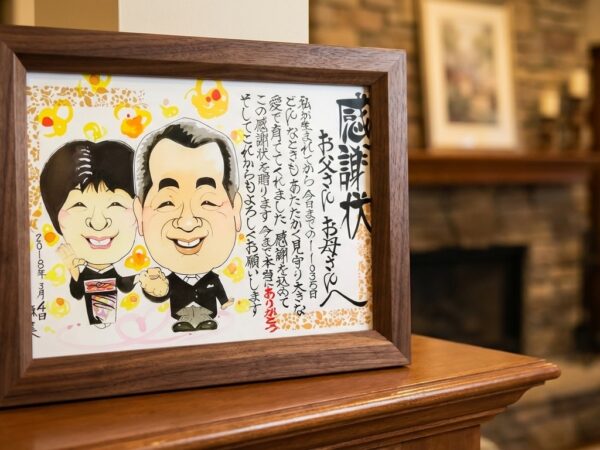 感謝状
お父さん お母さんへ
私が生まれてから 今日までの11035日
どんなときも あたたかく見守り 大きな
愛で育ててくれました 感謝を込めて
この感謝状を贈ります 今まで本当にありがとう
そしてこれからもよろしくお願いします
2018年 3月 4日